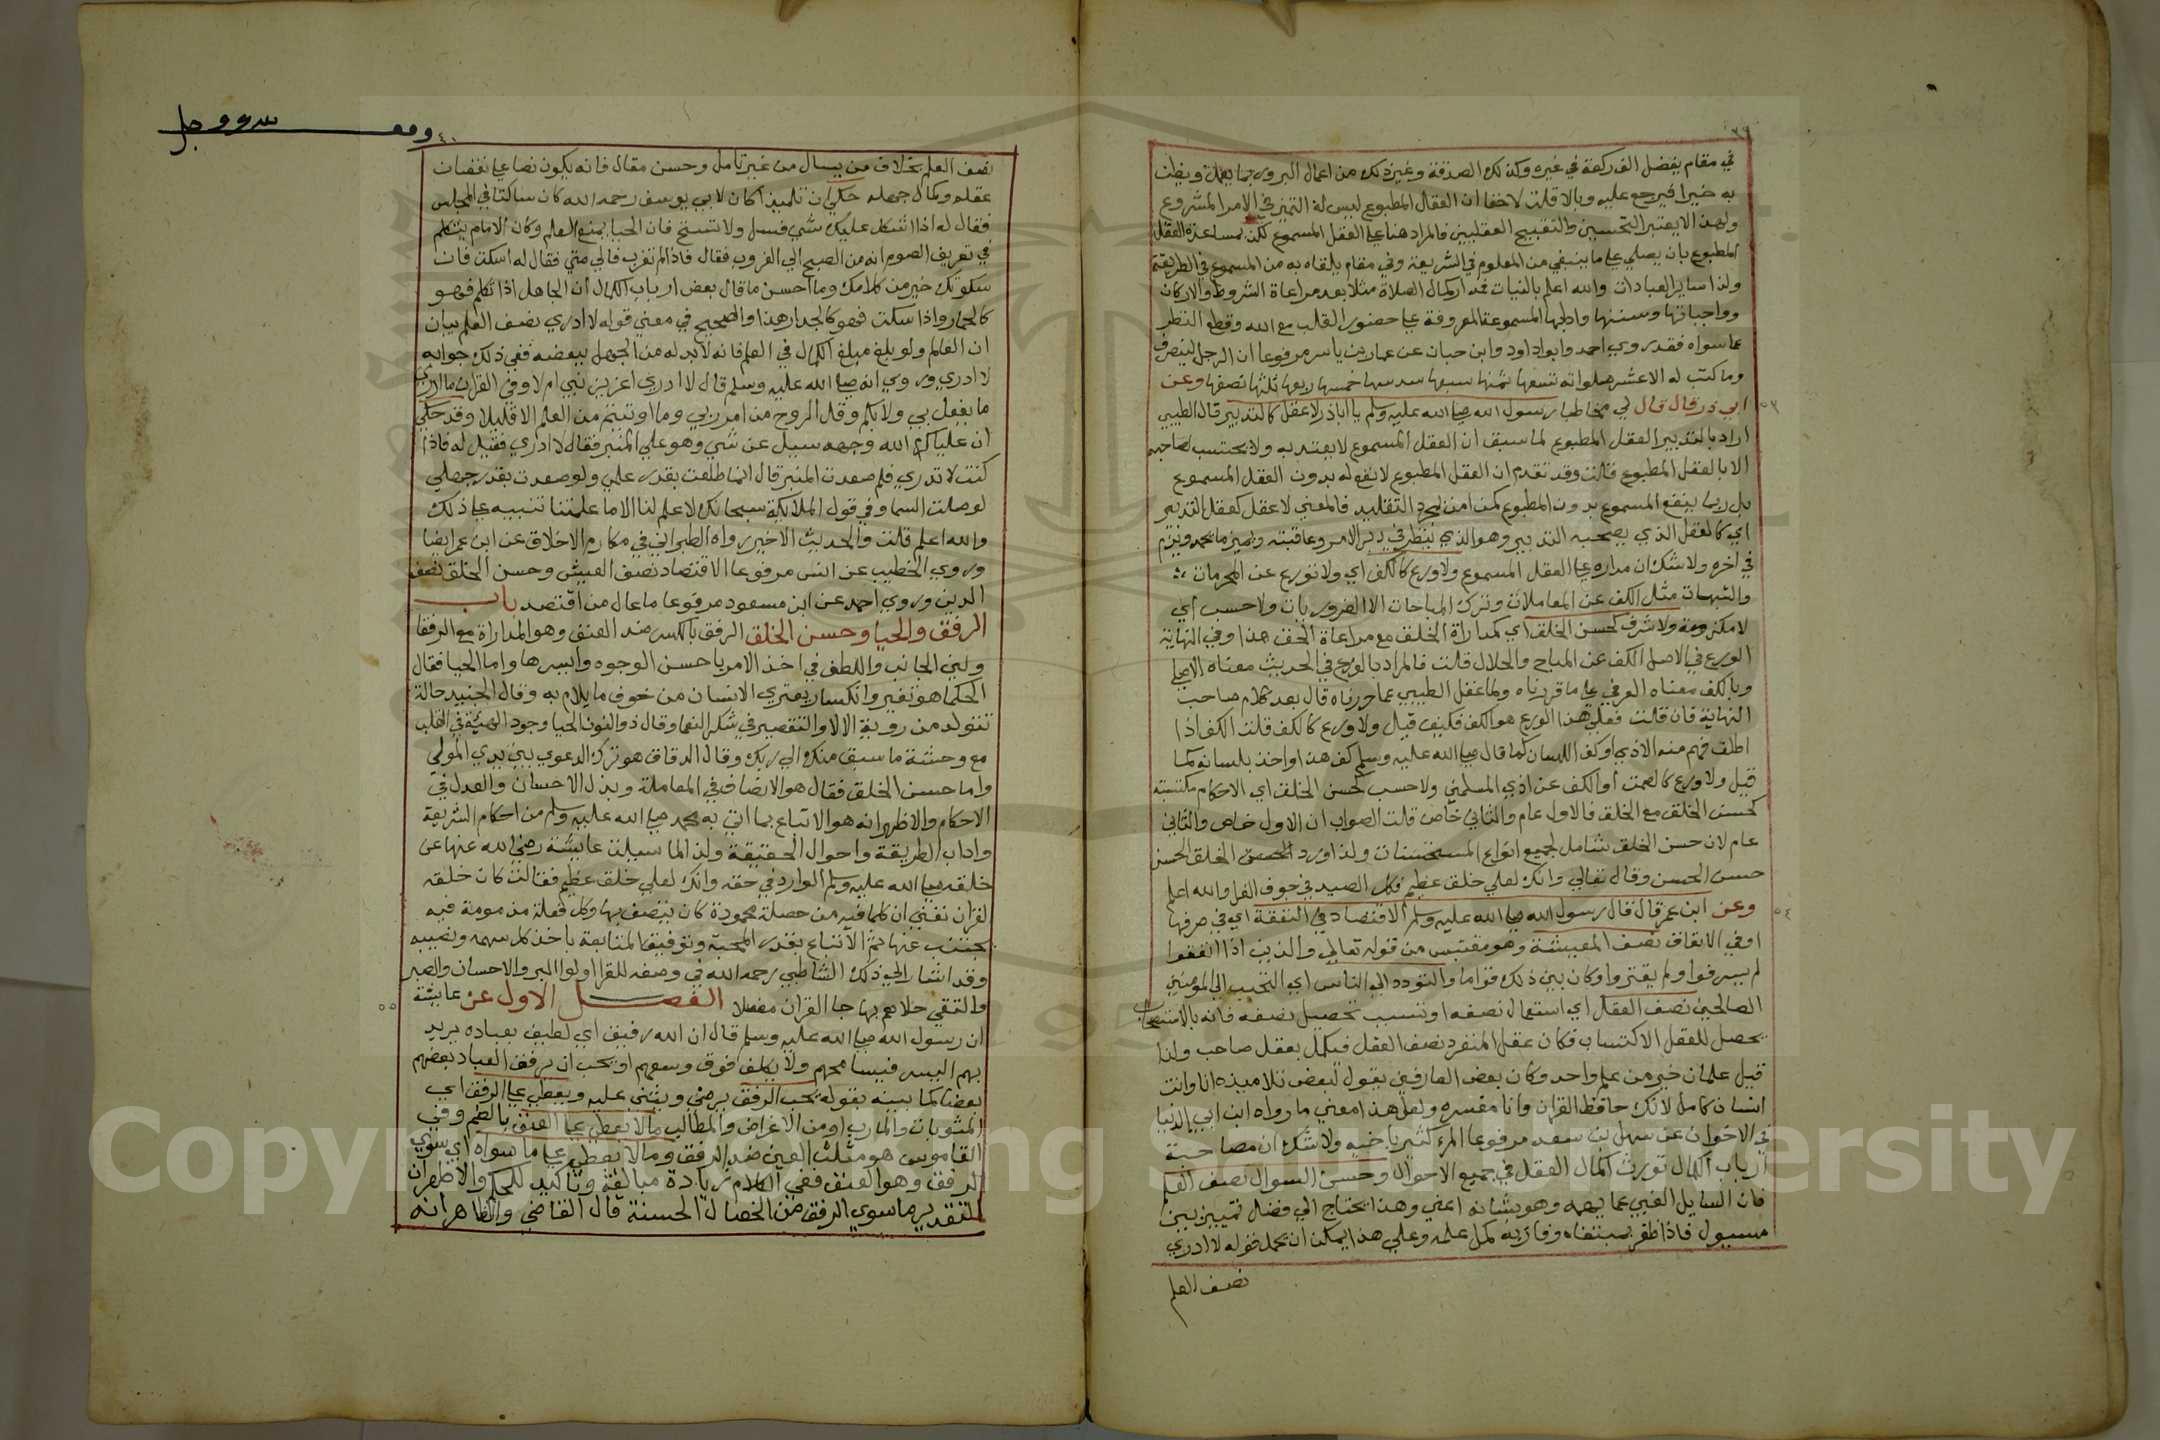 في مقام يفضل الف ركعة في غيره وكذلك الصدقة وغير ذلك من اعمال البر وربما يعمل ويظن
به خيرا فيرجع عليه وبالا قلت لا خفا ان العقال المطبوع ليس له التميز في الامر المشروع
ولهذا لا يعتبر التحسين والتقبيح العقليين فالمراد هنا على العقل المسموع لكن بمساعدة العقل
المطبوع بان يصلي على ما ينبغي من المعلوم في الشريعة وفي مقام يلقاه به من المسموع في الطريقة
ولذا ساير العبادات والله اعلم بالنيات قد اركمال الصلاة مثلا بعد مراعاة الشروط والاركان
وواجباتها وسننها وادابها المسموعة المعروفة على حضور القلب مع الله وقطع النظر
عما سواه فقد روي احمد وابو داود وابن حبان عن عمار بن ياسر مرفوعا ان الرجل لينصرف
وما كتب له الا عشر صلواته تسعها ثمنها سبعها سدسها خمسها ربعها ثلثها نصفها وعن
ابي ذر قال قال لي مخاطبا رسول الله صلى الله عليه وسلم يا اباذر لا عقل كالتدبير قال الطيبي
اراد بالتدبير العقل المطبوع لما سبق ان العقل المسموع لا يعتد به ولا يحتسب لصاحبه
الا بالعقل المطبوع قلت وقد تقدم ان العقل المطبوع لا نفع له بدون العقل المسموع
بل ربما ينفع المسموع بدون المطبوع كمن امن لمجرد التقليد فالمعني لا عقل كعقل التدبير
اي كالعقل الذي يصحبه التدبير وهو الذي ينظر في دبر الامر وعاقبته وتميز ما يحمد ويذم
في اخره ولا شك ان مداره على العقل المسموع ولا ورع كالكف اي ولا تورع عن المحرمات
والشبهات مثل الكف عن المعاملات وترك المباحات الا الضروريات ولا حسب اي
لا مكرومة ولا شرف كحسن الخلق اي كمداراة الخلق مع مراعاة الحق هذا وفي النهاية
الورع في الاصل الكف عن المباح والحلال قلت فالمراد بالورع في الحديث معناه الاصلي
وبالكف معناه العرفي على ما قررناه ولما غفل الطيبي عما حررناه قال بعد كلام صاحب
النهاية فان قلت فعلى هذا الورع هو الكف فكيف قيل ولا ورع كالكف قلت الكف اذا
اطلق فهم منه الاذي او كف اللسان كما قال صلى الله عليه وسلم كف هذا واخذ بلسانه كما
قيل ولا ورع كالصمت او الكف عن اذي المسلمين ولا حسب كحسن الخلق اي الاحكام مكتسبة
كحسن الخلق مع الخلق فالاول عام والثاني خاص قلت الصواب ان الاول خاص والثاني
عام لان حسن الخلق شامل لجميع انواع المستحسنات ولذا ورد الخلق الحسن
حسن الحسن وقال تعالي وانك لعلي خلق عظيم فكل الصيد في جوف الفرا والله اعلم
وعن ابن عمر قال قال رسول الله صلى الله عليه وسلم الاقتصاد في النفقة اي في صرفها
او في الانفاق نصف المعيشة وهو مقتبس من قوله تعالي والذين اذا انفقوا
لم يسرفوا ولم يقتروا وكان بين ذلك قواما والتودد الى الناس اي التحبب الي المؤمنين
الصالحين نصف العقل اي استعمال نصفه او تسبب تحصيل نصفه فانه بالاستصحاب
يحصل للعقل الاكتساب فكان عقل المنفرد نصف العقل فيكمل بعقل صاحب ولذا
قيل علمان خير من علم واحد وكان بعض العارفين يقول لبعض تلاميذه انا وانت
انسان كامل لانك حافظ القران وانا مفسره ولعل هذا معني ما رواه ابن ابي الدنيا
في الاخوان عن سهل بن سعد مرفوعا المرء كثير باخيه ولا شك ان مصاحبة
ارباب الكمال تورث كمال العقل في جميع الاحوال وحسن السوال نصف العلم
فان السايل الغبي عما يهمه وهو بشانه اعني وهذا يحتاج الي فضل تمييز بين
مسيول فاذا ظفر بمبتغاه وفاز به كمل علمه وعلي هذا يمكن ان يحمل قوله لا ادري
نصف العلم
نصف العلم بخلاف من يسال من غير تامل وحسن مقال فانه يكون نصا على نقصان
عقله وكمال جهله حكي ان تلميذا كان لابي يوسف رحمه الله كان ساكتا في المجلس
فقال له اذا اشكل عليك شي فسل ولا تستح فان الحيا يمنع العلم وكان الامام يتكلم
في تعريف الصوم انه من الصبح الي الغروب فقال فاذا لم تغرب فالي متي فقال له اسكت فان
سكوتك خير من كلامك وما احسن ما قال بعض ارباب الكمال ان الجاهل اذا تكلم فهو
كالحمار واذا سكت فهو كالجدار هذا والصحيح في معني قوله لا ادري نصف العلم بيان
ان العالم ولو بلغ مبلغ الكمال في العلم فانه لا بد له من الجهل ببعضه ففي ذلك جوابه
لا ادري وروي انه صلى الله عليه وسلم قال لا ادري اعزير نبي ام لا وفي القران ما ادري
ما يفعل بي ولا بكم وقل الروح من امر ربي وما اوتيتم من العلم الا قليلا وقد حكي
ان عليا كرم الله وجهه سيل عن شي وهو علي المنبر فقال لا ادري فقيل له فاذا
كنت لا تدري فلم صعدت المنبر قال انما طلعت بقدر علمي ولو صعدت بقدر جهلي
لوصلت السما وفي قول الملايكة سبحانك لا علم لنا الا ما علمتنا تنبيه على ذلك
والله اعلم قلت والحديث الاخير رواه الطبراني في مكارم الاخلاق عن ابن عمر ايضا
وروي الخطيب عن انس مرفوعا الاقتصاد نصف العيش وحسن الخلق نصف
الدين وروي احمد عن ابن مسعود مرفوعا ما عال من اقتصد باب
الرفق والحيا وحسن الخلق الرفق بالكسر ضد العنف وهو المداراة مع الرفقا
ولين الجانب واللطف في اخذ الامر باحسن الوجوه وايسرها واما الحيا فقال
الحكما هو تغير وانكسار يعتري الانسان من خوف ما يلام به وقال الجنيد حالة
تتولد من روية الالا والتقصير في شكر النعما وقال ذو النون الحيا وجود الهيبة في القلب
مع وحشة ما سبق منك الي ربك وقال الدقاق هو ترك الدعوي بين يدي المولي
واما حسن الخلق فقال هو الانصاف في المعاملة وبذل الاحسان والعدل في
الاحكام والاظهر انه هو الاتباع بما اتي به محمد صلى الله عليه وسلم من احكام الشريعة
واداب الطريقة واحوال الحقيقة ولذا لما سيلت عايشة رضي الله عنها عن
خلقه صلى الله عليه وسلم الوارد في حقه وانك لعلي خلق عظيم فقالت كان خلقه
القران تعني ان كلما فيه من خصلة محمودة كان يتصف بها وكل فعلة مذمومة فيه
يجتنب عنها ثم الاتباع بقدر المحبة وتوفيق المتابعة ياخذ كل سهمه ونصيبه
وقد اشار الي ذلك الشاطبي رحمه الله في وصفه للقرا اولوا البر والاحسان والصبر
والتقي حلاهم بها جا القران مفصلا الفصل الاول عن عايشة
ان رسول الله صلى الله عليه وسلم قال ان الله رفيق اي لطيف بعباده يريد
بهم اليسر فيسامحهم ولا يكلف فوق وسعهم او يحب ان يرفق العباد بعضهم
بعضا كما بينه بقوله يحب الرفق يرضي ويثني عليه ويعطي على الرفق اي
المثوبات والمارب او من الاغراض والمطالب ما لا يعطي على العنف بالضم وفي
القاموس هو مثلث العين ضد الرفق وما لا يعطي على ما سواه اي سوي
الرفق وهو العنف ففي الكلام زيادة مبالغة وتاكيد للحكم والاظهر ان
التقدير ما سوي الرفق من الخصال الحسنة قال القاضي والظاهر انه
Copyright © King Saud University